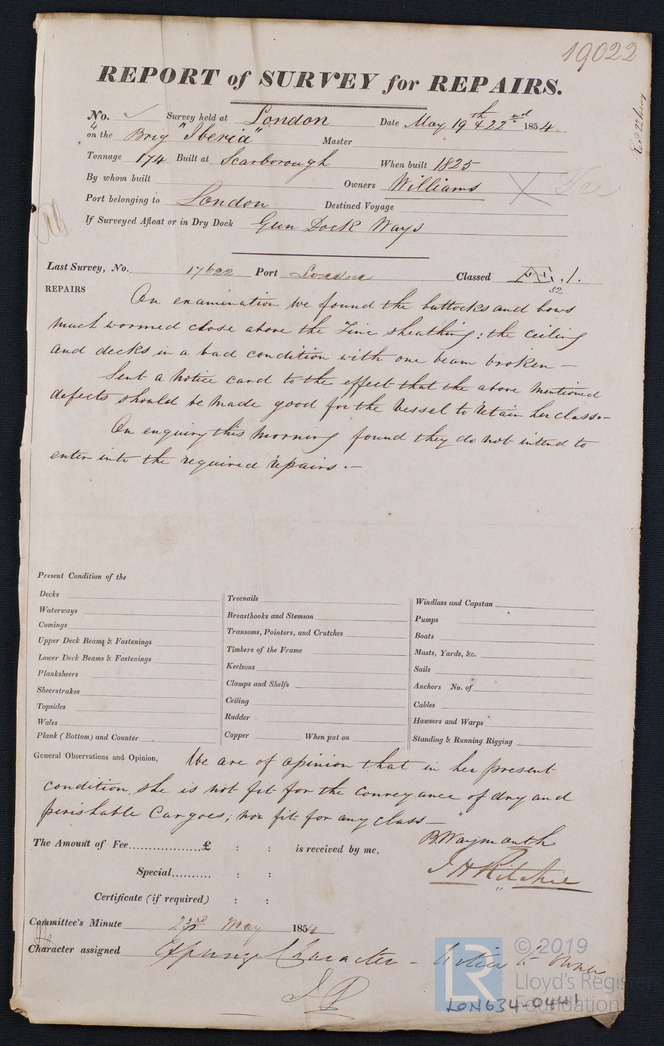 19022
REPORT of SURVEY for REPAIRS.
No. Survey held at London Date May 19th & 22nd 1854
on the Brig "Iberia" Master
Tonnage 174 Built at Scarborough When built 1825
By whom built Owners Williams
Port belonging to London Destined Voyage
If Surveyed Afloat or in Dry Dock Gun Dock Ways
Last Survey, No. 17622 Port London Classed Æ.1.
52
REPAIRS On examination we found the buttocks and bows
much wormed close above the Zinc sheathing: the ceiling
and decks in a bad condition with one beam broken —
Sent a notice card to the effect that the above mentioned
defects should be made good for the Vessel to retain her class —
On enquiry this morning found they do not intend to
enter into the required repairs. —
Present Condition of the
Decks
Waterways
Comings
Upper Deck Beams & Fastenings
Lower Deck Beams & Fastenings
Planksheers
Sheerstrakes
Topsides
Wales
Plank (Bottom) and Counter
Treenails
Breasthooks and Stemson
Transoms, Pointers, and Crutches
Timbers of the Frame
Keelsons
Clamps and Shelfs
Ceiling
Rudder
Copper When put on
Windlass and Capstan
Pumps
Boats
Masts, Yards, &c.
Sails
Anchors No. of
Cables
Hawsers and Warps
Standing & Running Rigging
General Observations and Opinion, We are of opinion that in her present
condition, she is not fit for the conveyance of dry and
perishable Cargoes; nor fit for any class —
The Amount of Fee....................£ : : is received by me, B. Waymouth
Special.......... : : J H Ritchie
Certificate (if required) : :
Committee's Minute 23rd May 1854
Character assigned Expunge Character - Notice to Owner
© 2019
Lloyd's Register
Foundation
LON634-0441